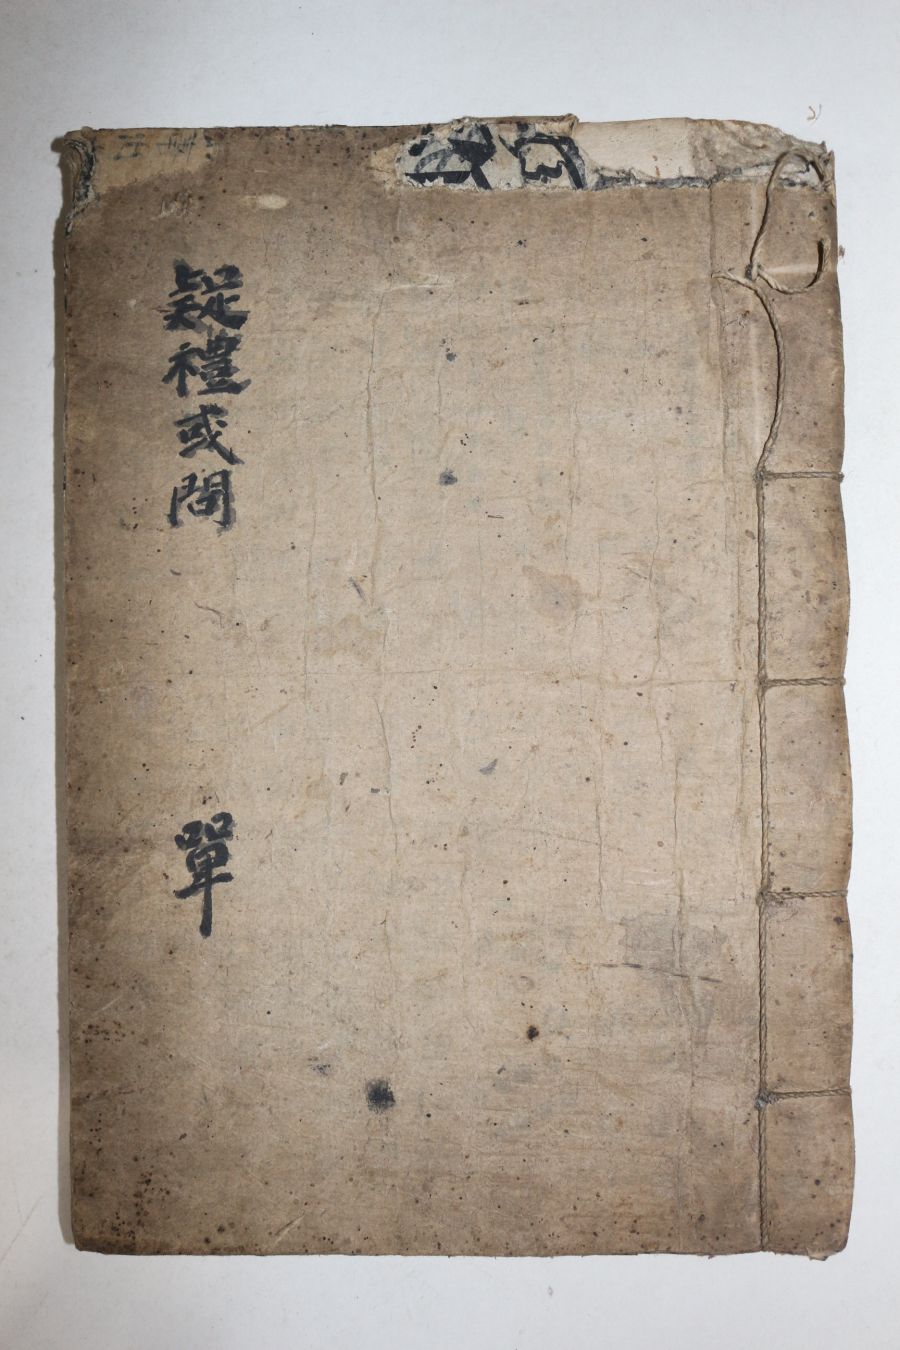 疑禮或問
單